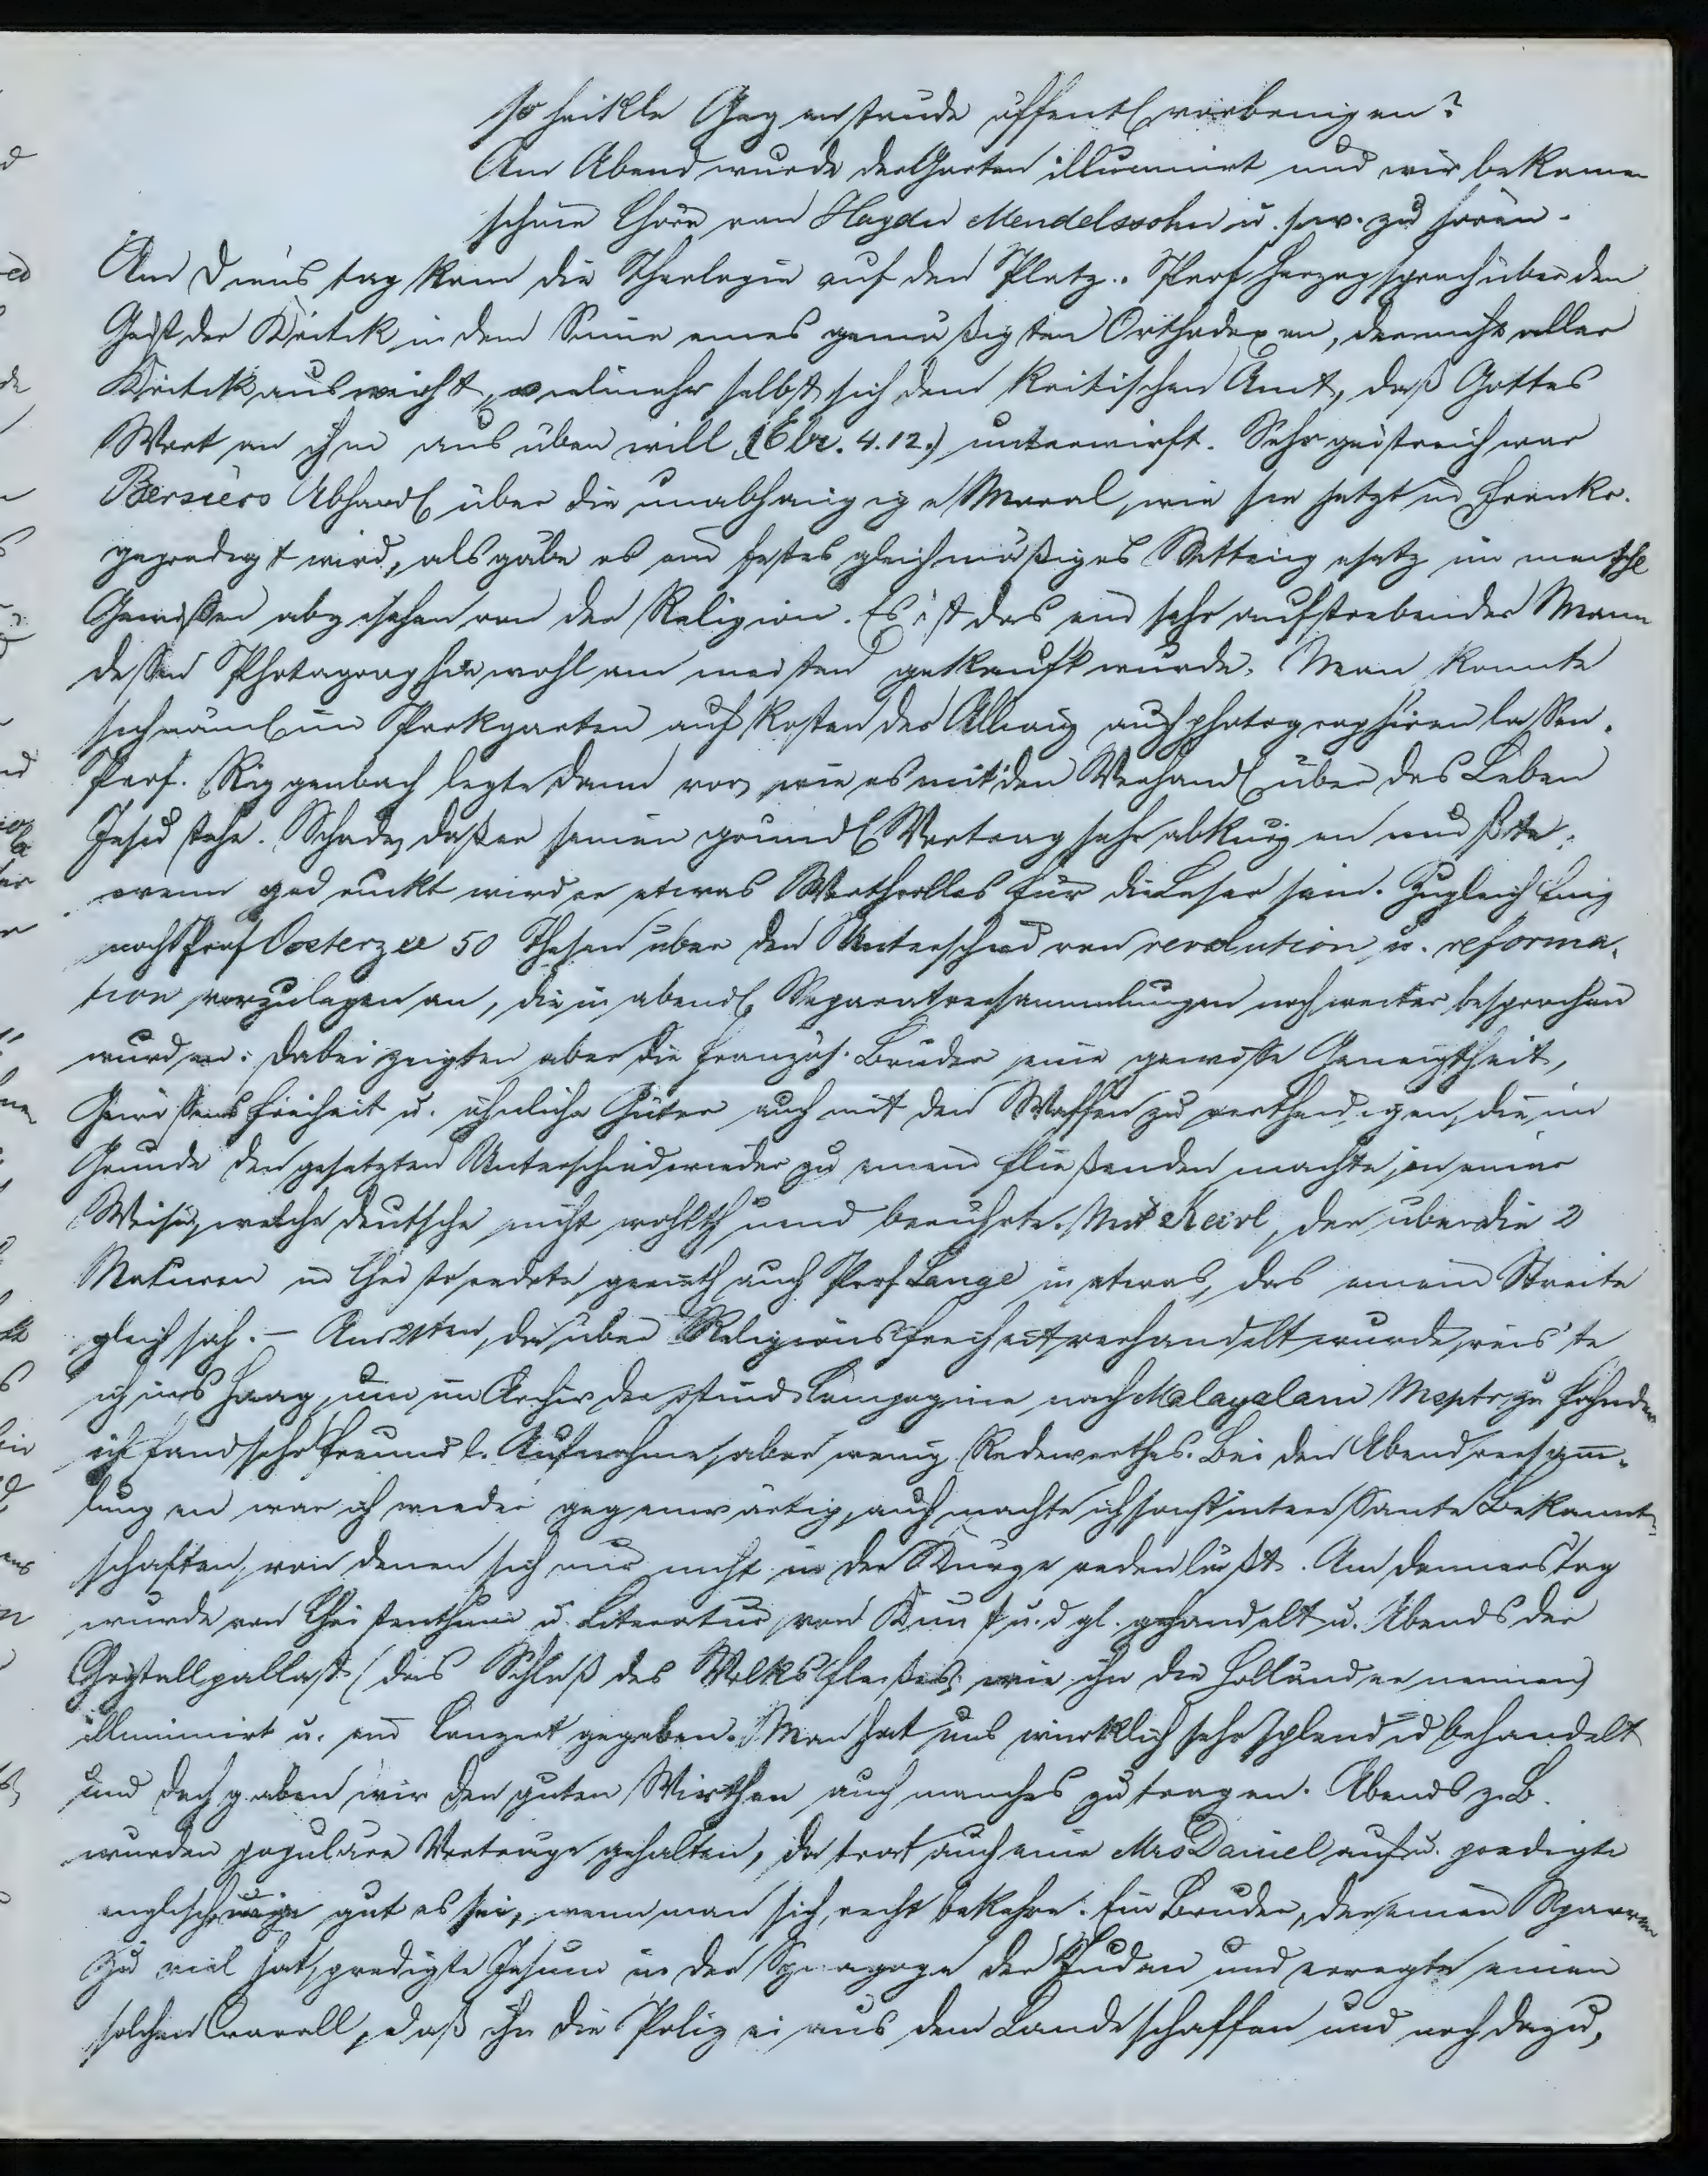 so heikle Gegenstände öffentl vorbringen?
Am Abend wurde der Garten illuminirt und wir bekamen
schöne Chöre von Haydn Mendelssohn u.s.w. zu hören.
Am Dienstag kam die Theologie auf den Platz. Prof Herzog sprach über den
Geist der Kritik in dem Sinne eines gemäßigten Orthodoxen, der nicht aller
Kritik ausweicht, vielmehr selbst sich dem kritischen Amt, daß Gottes
Wort an ihm ausüben will (Ebr. 4.12.) unterwirft. Sehr geistreich war
Bersiers Abhandl über die unabhängige Moral, wie sie jetzt in Frankr.
gepredigt wird, als gäbe es ein festes gleichmäßiges Sittengesetz im menschl
Gewissen abgesehen von der Religion. Es ist das ein sehr aufstrebender Mann
dessen Photographie wohl am meisten gekauft wurde. Man konnte
sich näml im Parkgarten auf Kosten der Allianz auch photographiren lassen.
Prof. Riggenbach legte dann vor, wie es mit den Verhandl über das Leben
Jesu stehe. Schade, daß er seinen gründl Vortrag sehr abkürzen mußte;
wenn gedruckt wird er etwas Werthvolles für die Leser sein. Zugleich fing
noch Prof Oosterzee 50 Thesen über den Unterschied von revolution u. reforma-
tion vorzulegen an, die in abendl Separatversammlungen noch weiter besprochen
wurden: dabei zeigten aber die französ. Brüder eine gewisse Geneigtheit,
Gewissensfreiheit u. ähnliche Güter auch mit den Waffen zu vertheidigen, die im
Grunde den gesetzten Unterschied wieder zu einem fließenden machte in einer
Weise, welche Deutsche nicht wohlthuend berührte. Mit Keerl, der über die 2
Naturen in Christo redete, gerieth auch Prof Lange in etwas, das einem Streite
gleich sah. – Am 21ten, da über Religionsfreiheit verhandelt wurde, reis'te
ich ins Haag, um im Archiv der ostind Compagnie nach Malayalam Mspts zu fahnden
ich fand sehr freundl. Aufnahme, aber wenig Redewerthes. Bei den Abendversam-
lungen war ich wieder gegenwärtig, auch machte ich sonst interessante Bekannt-
schaften, von denen sich nur nicht in der Kürze reden läßt. Am Donnerstag
wurde von Christenthum u. Literatur, von Kunst u. dgl. gehandelt u. Abends der
Crystallpallast (das Schloß des Volksfleißes, wie ihn die Holländer nennen)
illuminirt u. ein Conzert gegeben. Man hat uns wirklich sehr splendid behandelt
und doch gaben wir den guten Wirthen auch manches zu tragen. Abends z.B.
wurden populäre Vorträge gehalten, da trat auch eine Mrs Daniel auf u. predigte
englisch wie gut es sei, wenn man sich recht bekehre. Ein Bruder, der einen Sparren
zu viel hat, predigte Jesum in der Synagoge der Juden und erregte einen
solchen Crawall, daß ihn die Polizei aus dem Lande schaffen und noch dazu,